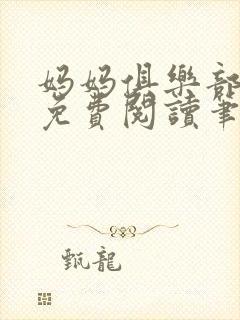 妈妈俱樂部
免費閱讀筆
甄龍